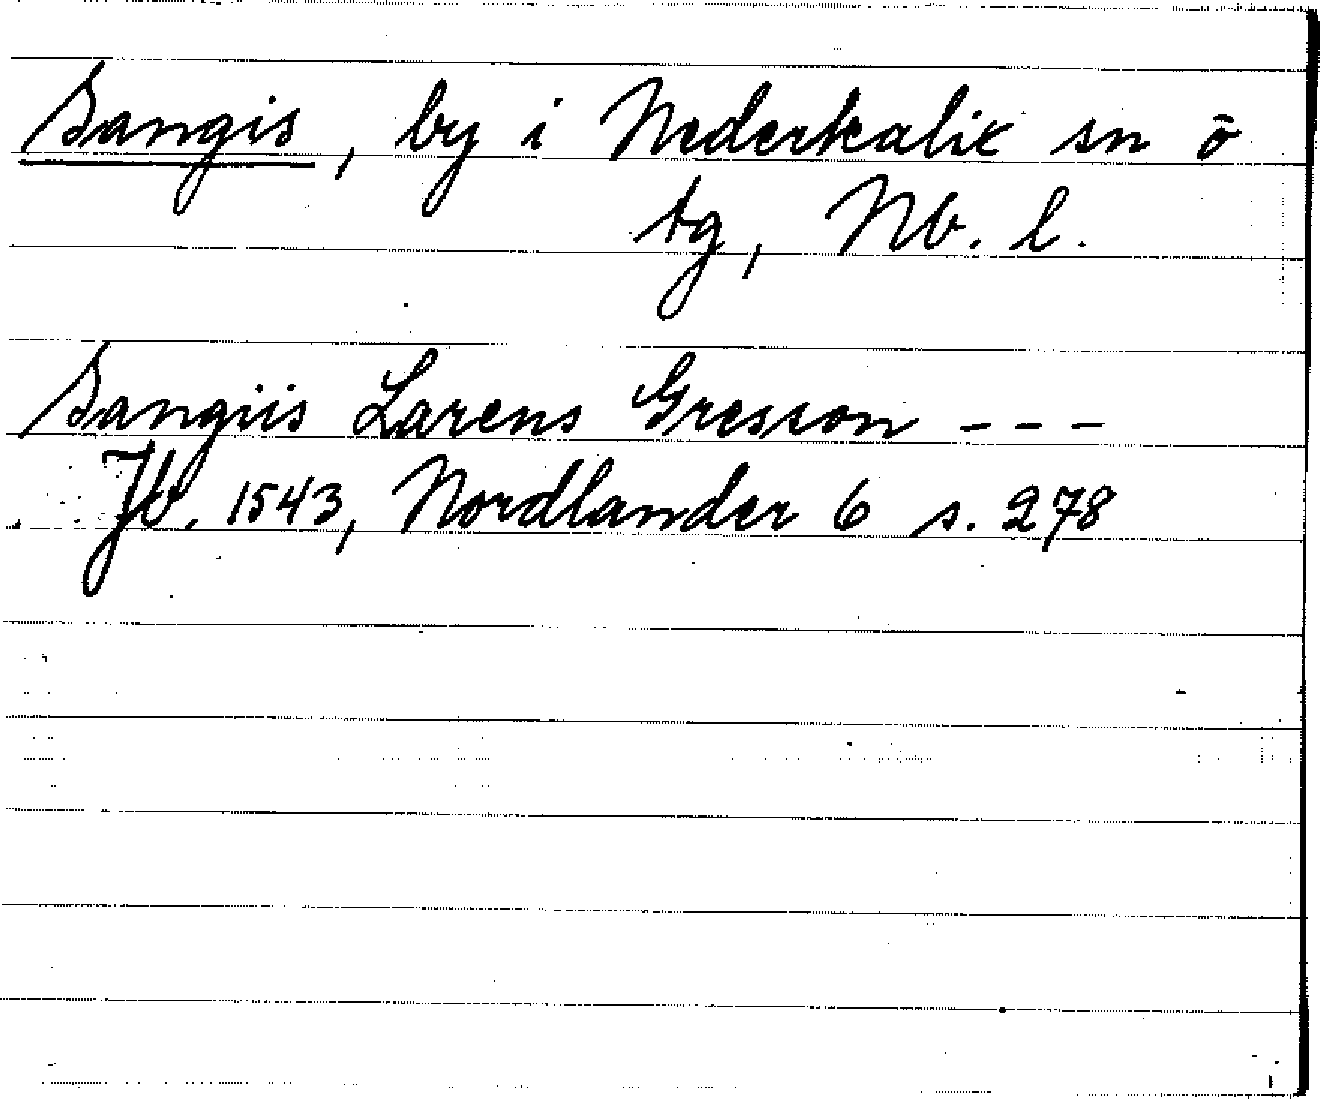 Sangis, by i Nederkalix sn ö
tg, Nb. l.
Sangiis Larens Gresson ---
Jb. 1543, Nordlander 6 s. 278